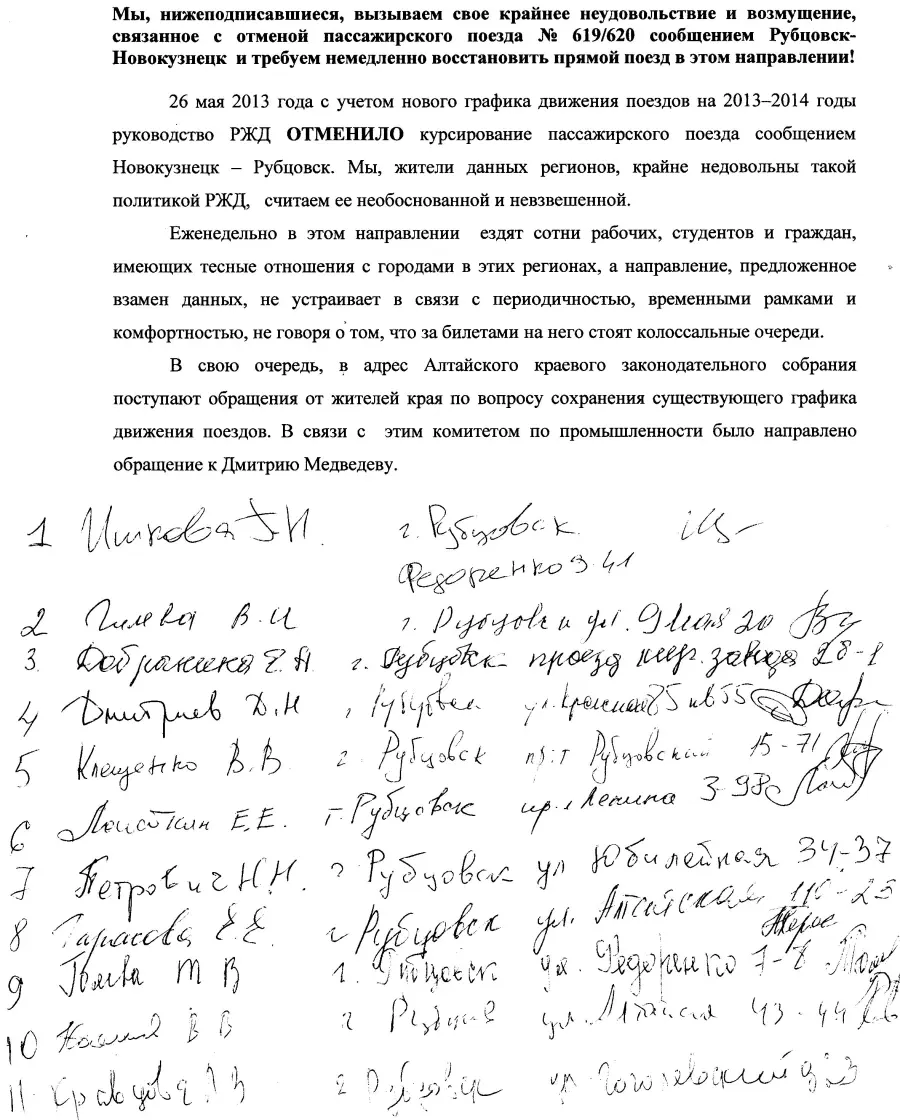 Мы, нижеподписавшиеся, вызываем свое крайнее неудовольствие и возмущение,
связанное с отменой пассажирского поезда № 619/620 сообщением Рубцовск-
Новокузнецк и требуем немедленно восстановить прямой поезд в этом направлении!
26 мая 2013 года с учетом нового графика движения поездов на 2013–2014 годы
руководство РЖД ОТМЕНИЛО курсирование пассажирского поезда сообщением
Новокузнецк – Рубцовск. Мы, жители данных регионов, крайне недовольны такой
политикой РЖД, считаем ее необоснованной и невзвешенной.
Еженедельно в этом направлении ездят сотни рабочих, студентов и граждан,
имеющих тесные отношения с городами в этих регионах, а направление, предложенное
взамен данных, не устраивает в связи с периодичностью, временными рамками и
комфортностью, не говоря о том, что за билетами на него стоят колоссальные очереди.
В свою очередь, в адрес Алтайского краевого законодательного собрания
поступают обращения от жителей края по вопросу сохранения существующего графика
движения поездов. В связи с этим комитетом по промышленности было направлено
обращение к Дмитрию Медведеву.
1 г. Рубцовск
Федоренко 9-41
2 Гилева В.И г. Рубцовск ул. 9 Мая 20
3. г. проезд завода 28-1
4 Дмитриев Д.Н ул. Красная
5 Клещенко В.В. г. Рубцовск пр-т Рубцовский 15-71
6 Е.Е. г. Рубцовск Ленина 3-98
7 Петрович Н.Н. г Рубцовск ул Юбилейная 34-37
8 Тарасова Е.Е. г Рубцовск ул. Алтайская
9 Т В г. ул. Федоренко 7-8
10 В В г ул. 43-44
11 Кравцова В г Рубцовск ул Гоголевский